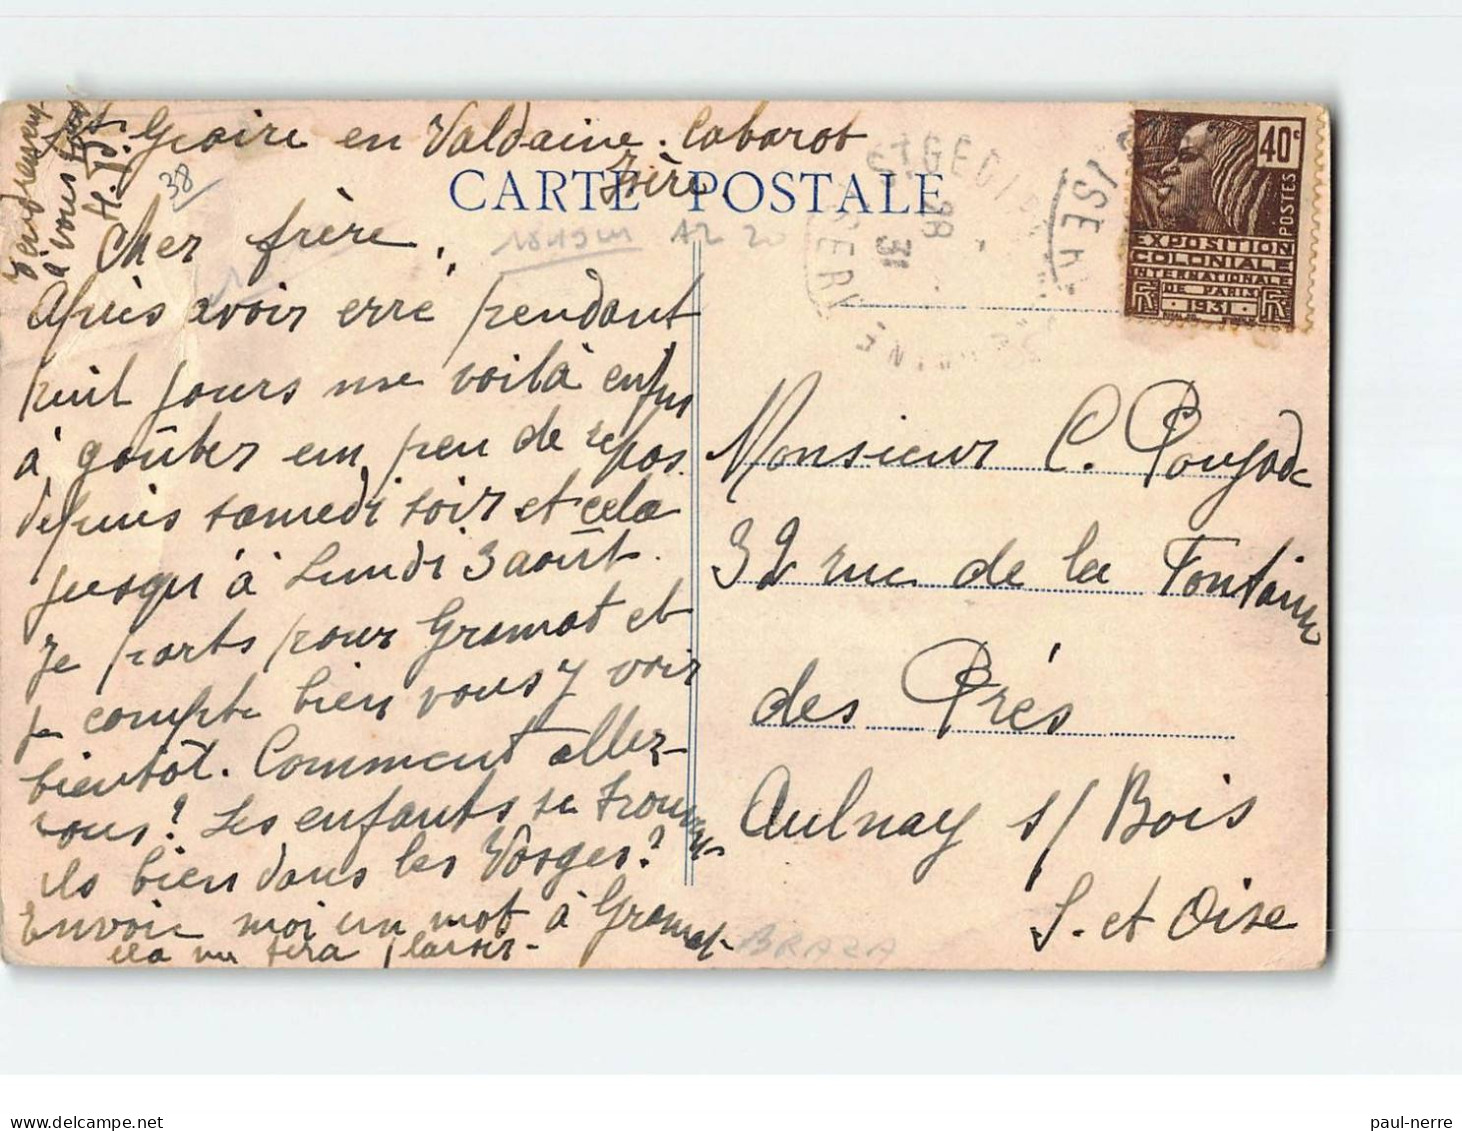 St Geoire en Valdaine. Cabarot
Isère
CARTE POSTALE
38
Cher frère,
Après avoir erré pendant
huit jours me voilà enfin
à goûter un peu de repos
depuis samedi soir et cela
jusqu'à Lundi 3 août.
Je parts pour Gramat et
je compte bien vous y voir
bientôt. Comment allez-
vous? Les enfants se trouvent
ils bien dans les Vosges?
Envoie moi un mot à Gramat
cela me fera plaisir-
Tendrement
à vous tous
H.
40c
POSTES
EXPOSITION
COLONIALE
INTERNATIONALE
DE PARIS
1931
ISÈRE
28
31
Monsieur C. Poujade
32 rue de la Fontaine
des Prés
Aulnay s/ Bois
S. et Oise
BRAZA
paul-nerre